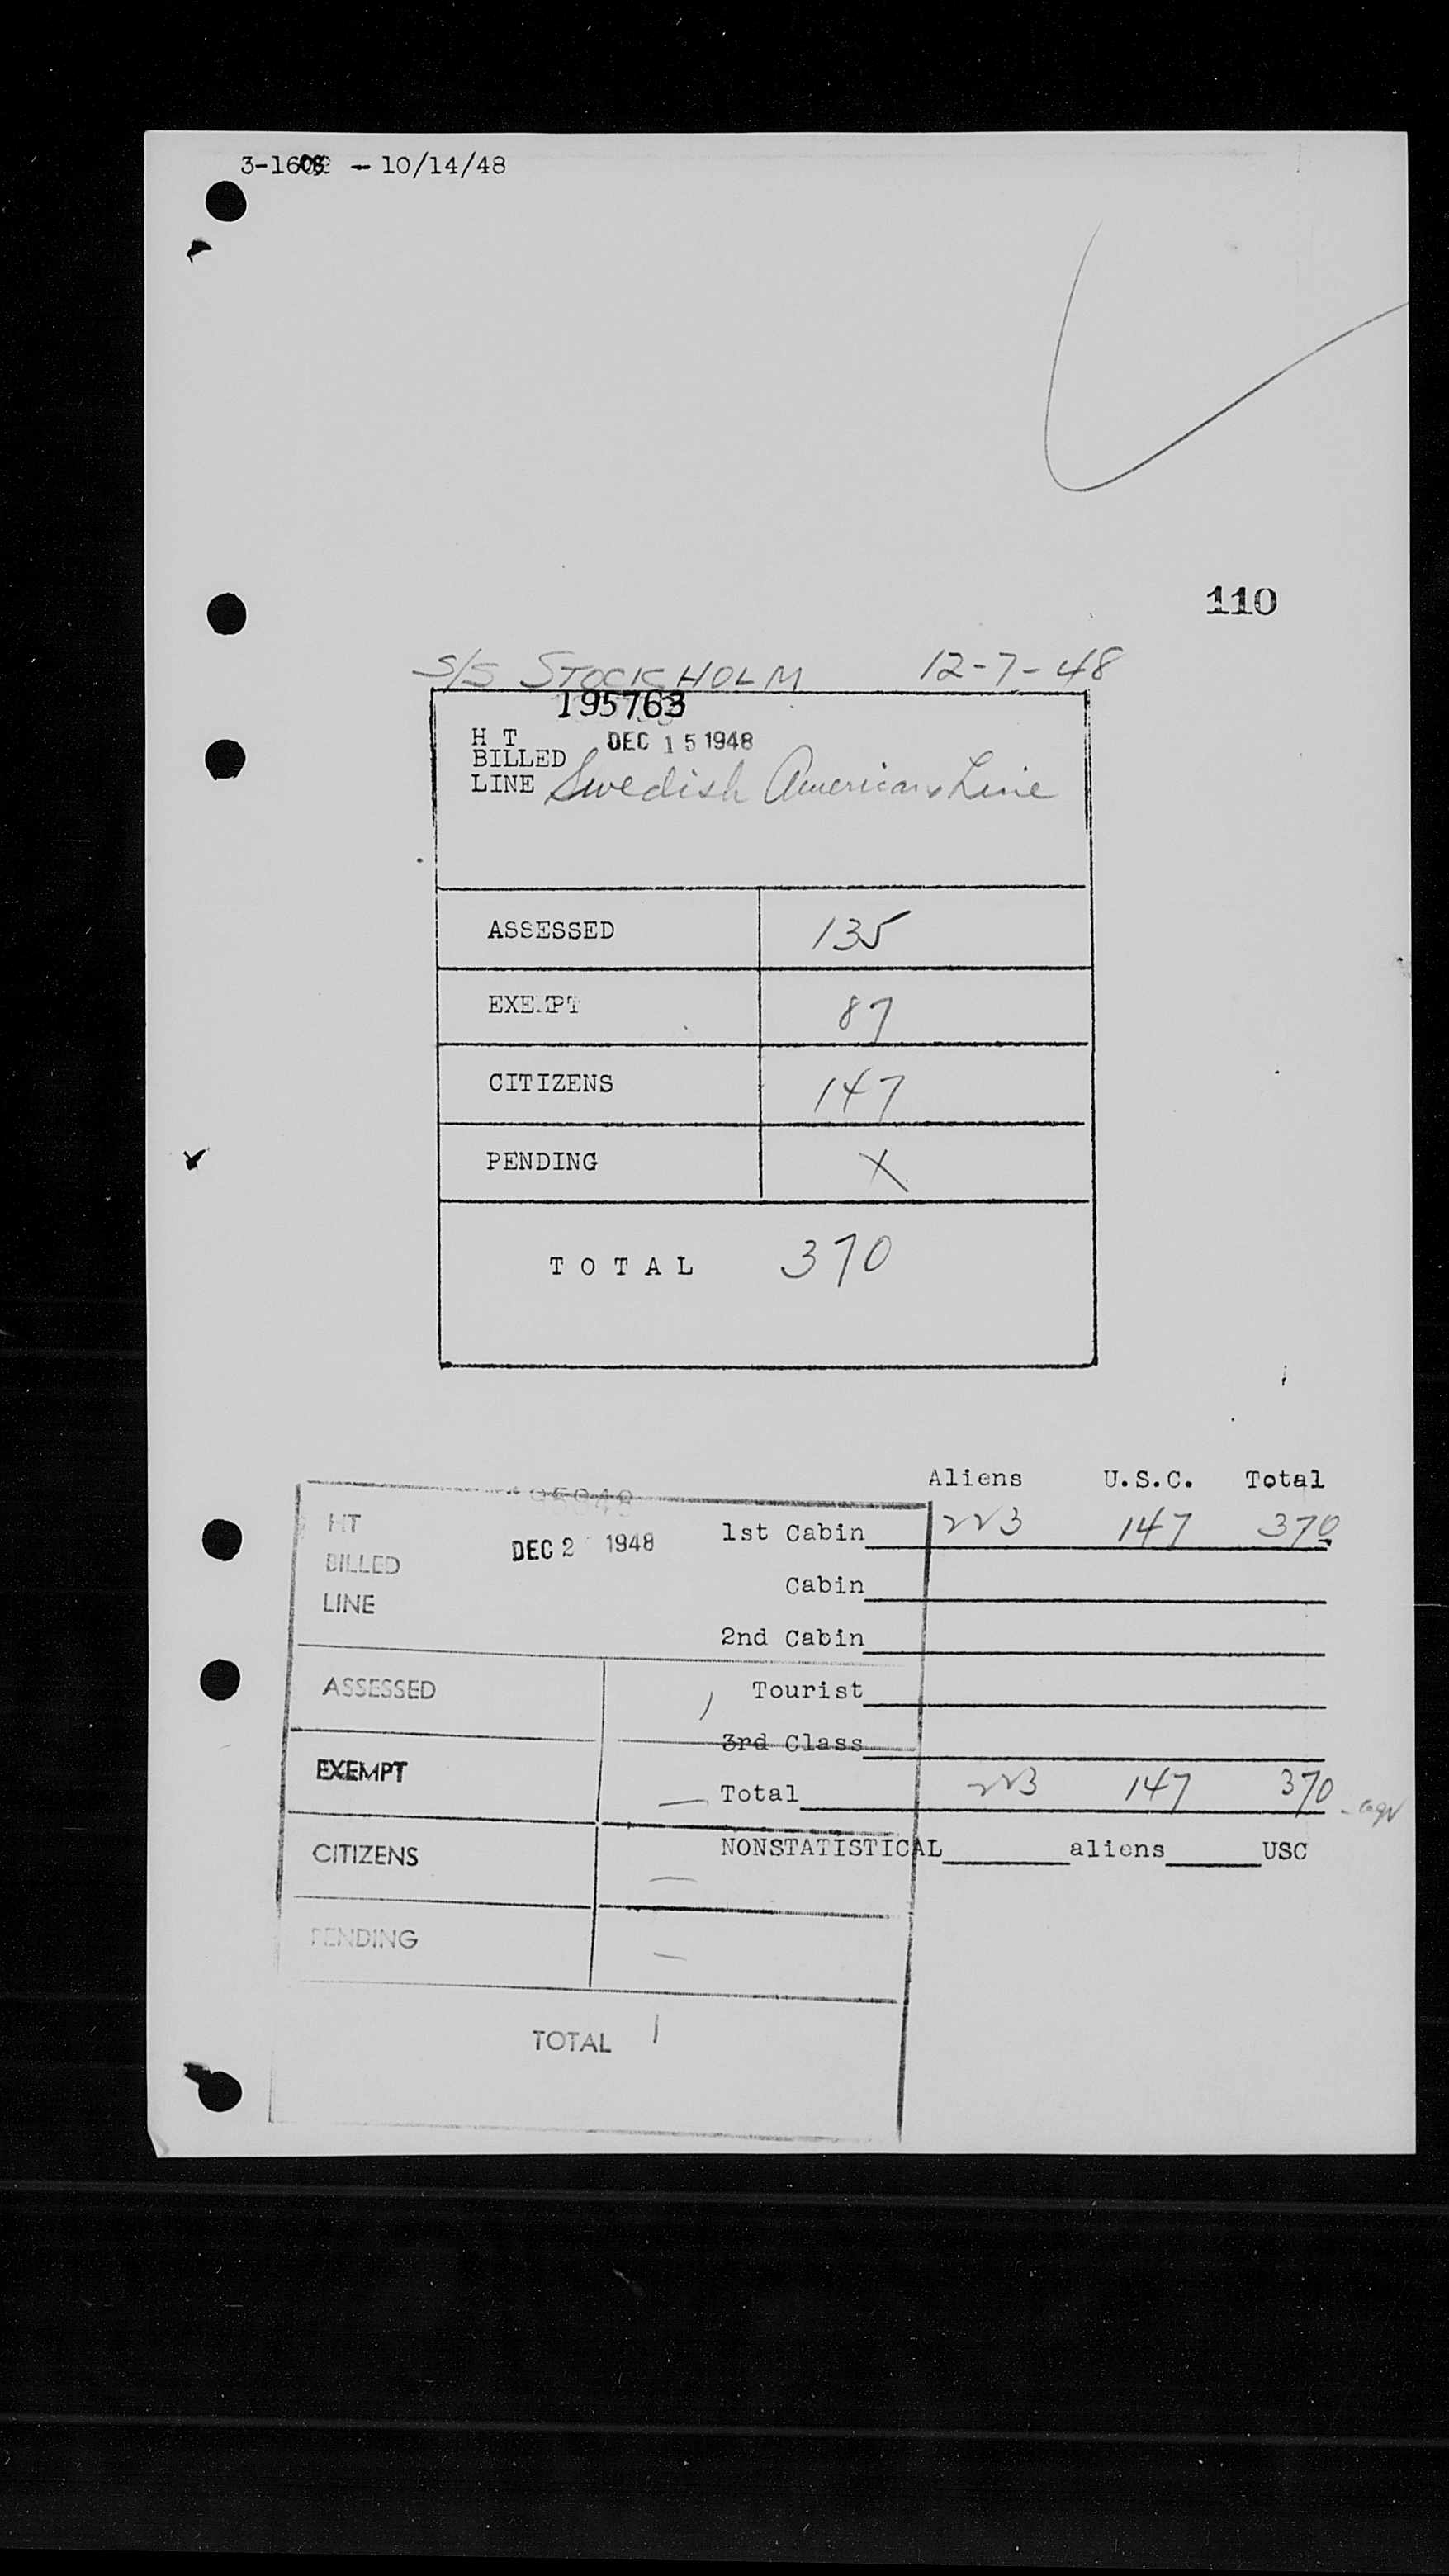 - 10/14/48
110
S/S STOCKHOLM 12-7-48
195763
H T
BILLED DEC 15 1948
LINE Swedish American Line
ASSESSED 135
EXEMPT 87
CITIZENS 147
PENDING X
TOTAL 370
Aliens U.S.C. Total
1st Cabin 223 147 370
Cabin
2nd Cabin
Tourist
3rd Class
Total 223 147 370
NONSTATISTICAL aliens USC
HT
BILLED DEC 2 1948
LINE
ASSESSED 1
EXEMPT —
CITIZENS —
PENDING —
TOTAL 1